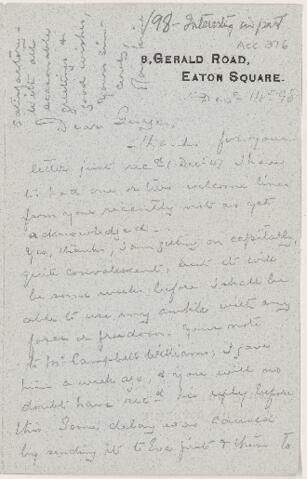 /98 - Interesting in part
Acc 376
8, GERALD ROAD,
EATON SQUARE.
Dec. 14th 98
satisfactory.
With all
seasonable
greetings &
good wishes,
Yours sin-
cerely,
Dear
Thanks for your
letter just recd (Dec. 4) I have
to had one or two welcome lines
from you recently not as yet
acknowledged.
Yes, thanks, I am getting on capitally,
quite convalescent, but it will
be some weeks before I shall be
able to use my ankle with any
force or freedom. Your note
to Mr. Campbell Williams, I gave
him a week ago, & you will no
doubt have recd his reply before
this. Some delay was caused
by sending it to Eve first & then to